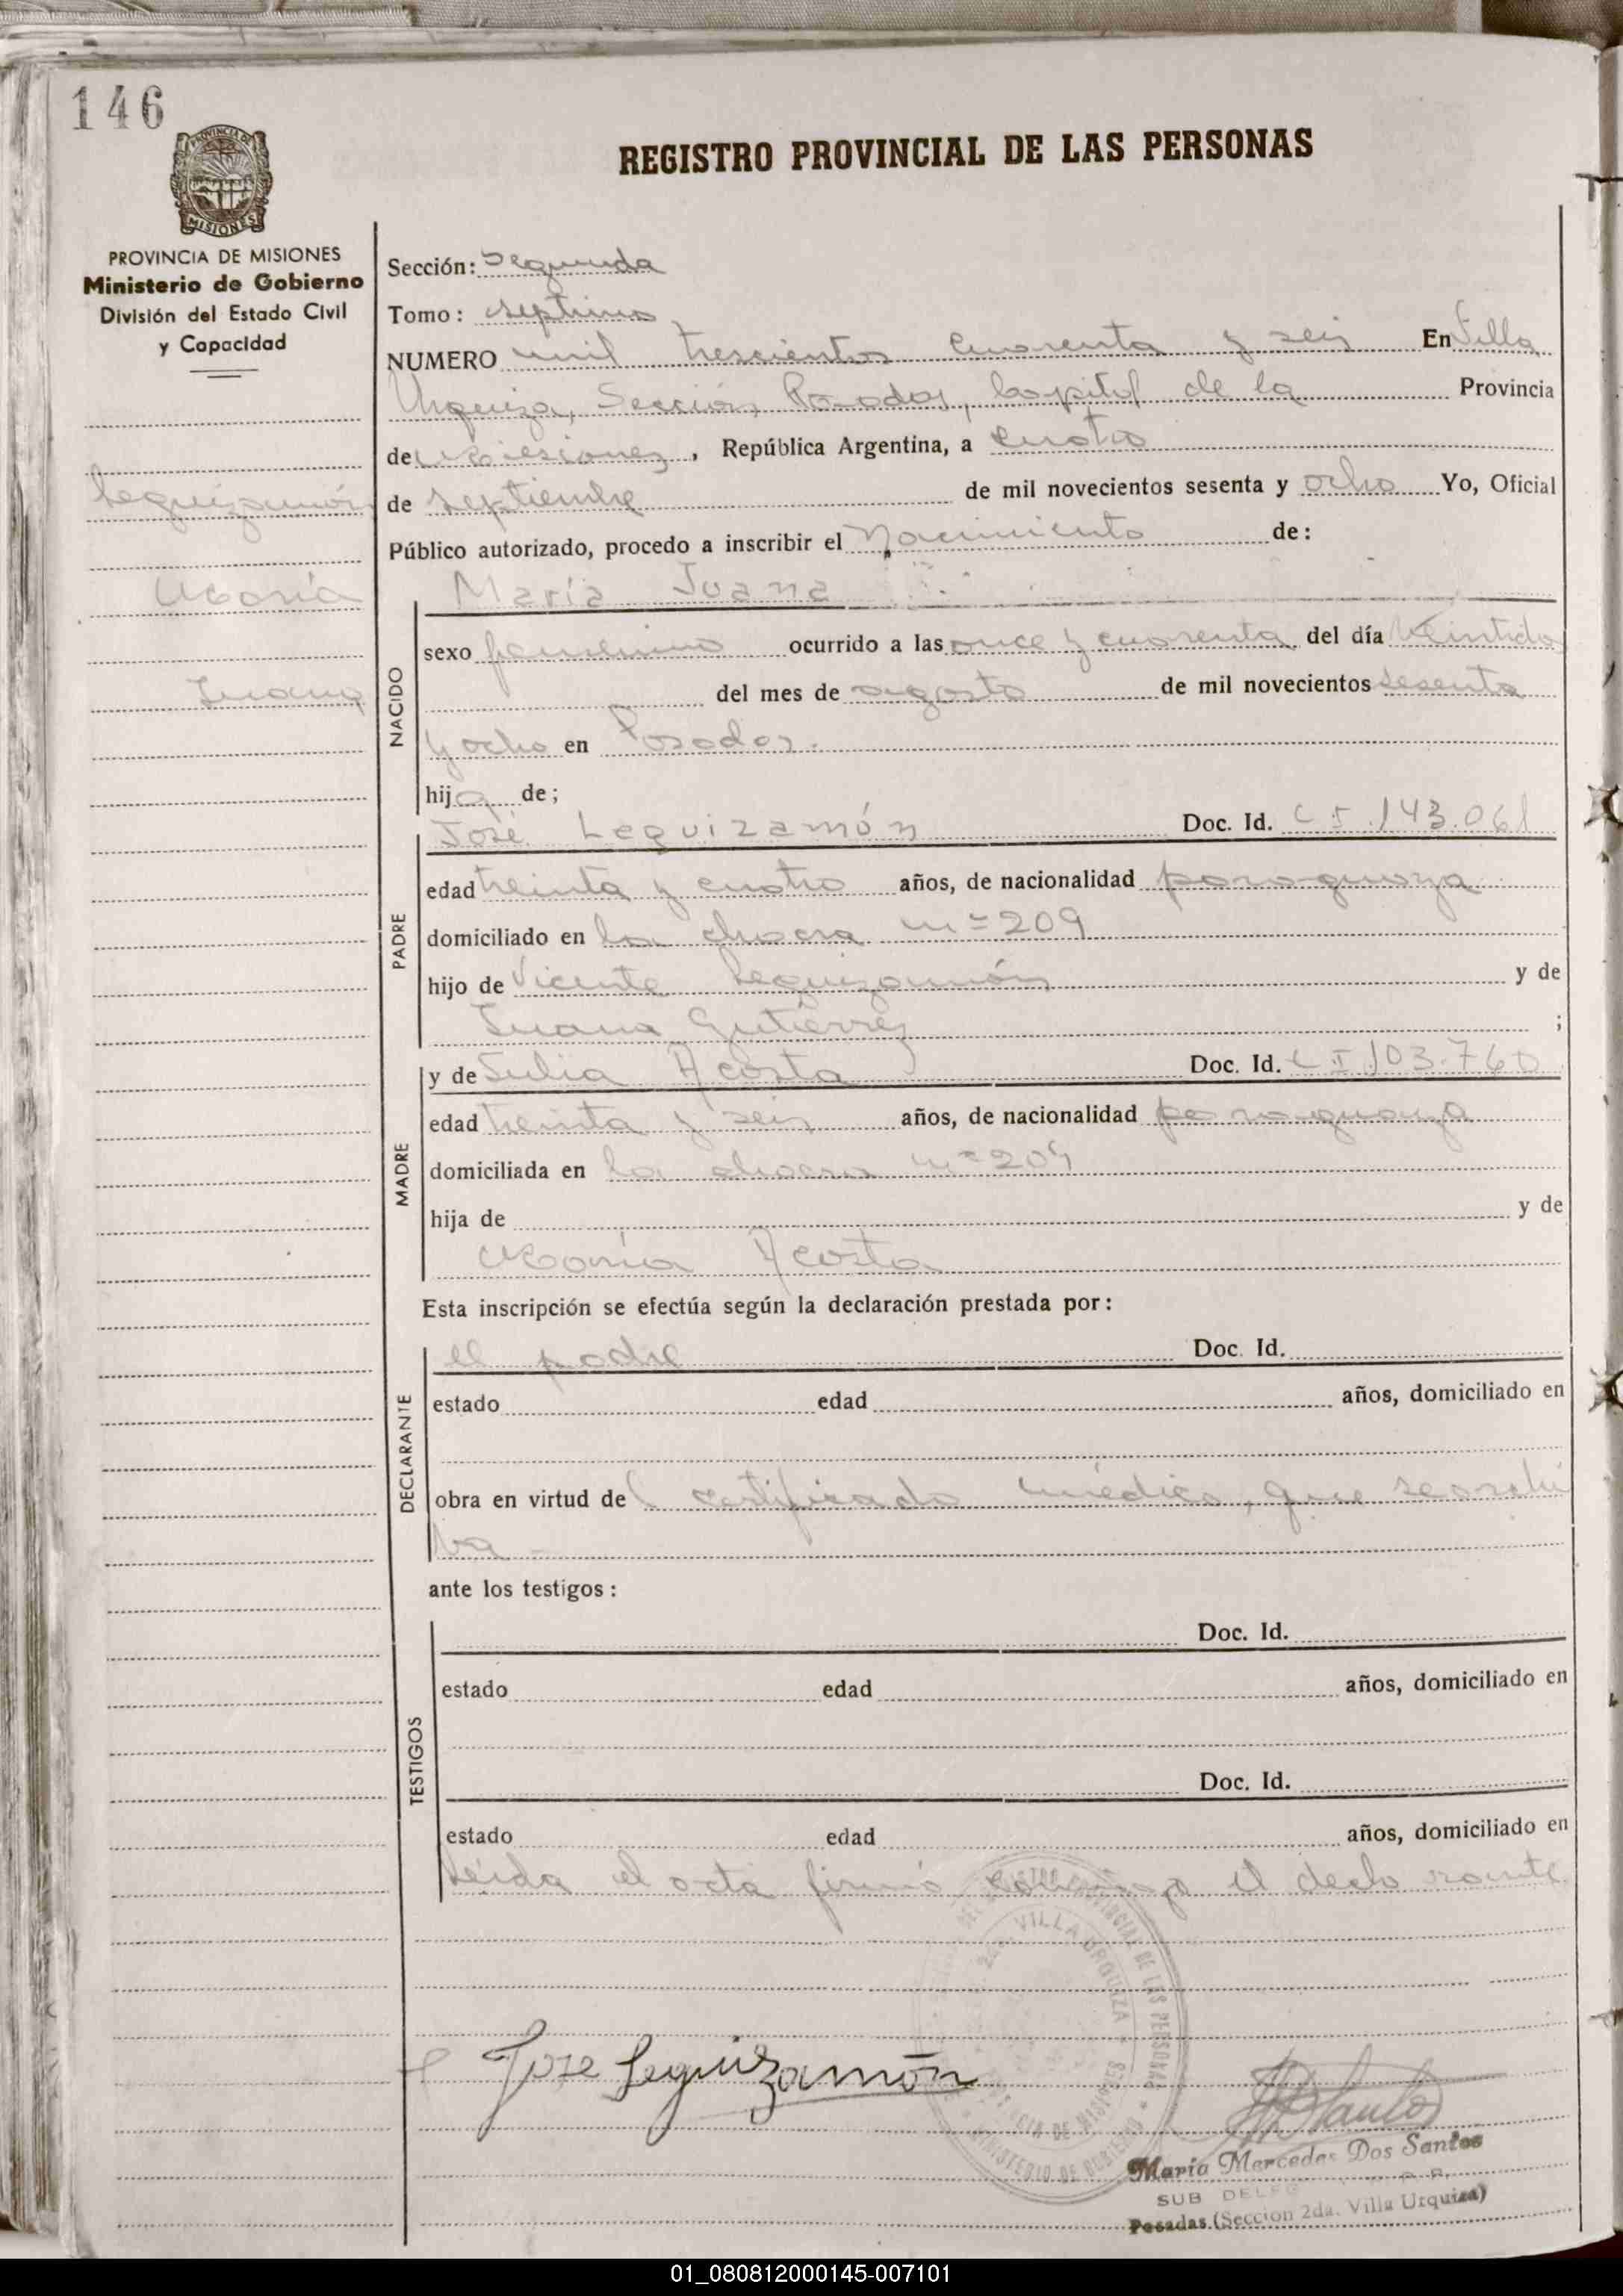 146
PROVINCIA DE MISIONES
REGISTRO PROVINCIAL DE LAS PERSONAS
PROVINCIA DE MISIONES
Ministerio de Gobierno
División del Estado Civil
y Capacidad
Leguizamón
María
Juana
Sección: Segunda
Tomo: septimo
NUMERO mil trescientos cuarenta y seis En Villa
Urquiza, Sección Posadas, Capital de la Provincia
de Misiones, República Argentina, a cuatro
de septiembre de mil novecientos sesenta y ocho Yo, Oficial
Público autorizado, procedo a inscribir el Nacimiento de:
NACIDO
María Juana
sexo femenino ocurrido a las once y cuarenta del día veintidos
del mes de agosto de mil novecientos sesenta
y ocho en Posadas.
hija de;
PADRE
José Leguizamón Doc. Id. C I 143.061
edad treinta y cuatro años, de nacionalidad paraguaya
domiciliado en la chacra nº 209
hijo de Vicente Leguizamón y de
Juana Gutiérrez ;
MADRE
y de Julia Acosta Doc. Id. C I 103.760
edad treinta y seis años, de nacionalidad paraguaya
domiciliada en la chacra nº 209
hija de y de
María Acosta
Esta inscripción se efectúa según la declaración prestada por:
DECLARANTE
el padre Doc. Id.
estado edad años, domiciliado en
obra en virtud del certificado médico, que se archi
va -
ante los testigos:
TESTIGOS
Doc. Id.
estado edad años, domiciliado en
Doc. Id.
estado edad años, domiciliado en
Leída el acta firmó conmigo el declarante
VILLA URQUIZA
MINISTERIO DE GOBIERNO
Jose Leguizamón
María Mercedes Dos Santos
SUB DELEG
Posadas (Seccion 2da. Villa Urquiza)
01_080812000145-007101